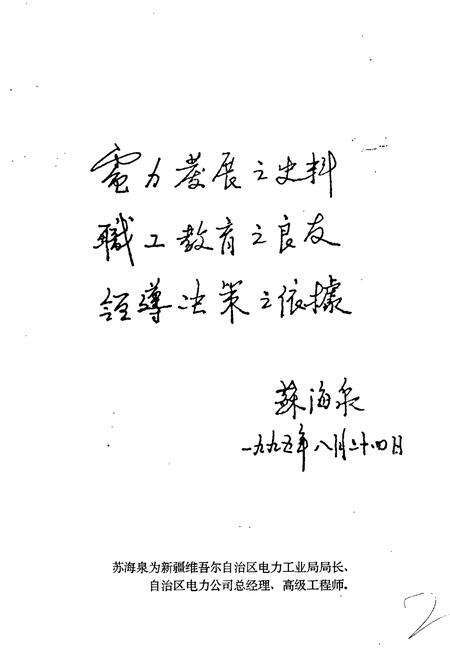 電力發展之史料
職工教育之良友
領導决策之依據
蘇海泉
一九九五年八月二十四日
苏海泉为新疆维吾尔自治区电力工业局局长、
自治区电力公司总经理、高级工程师。
2